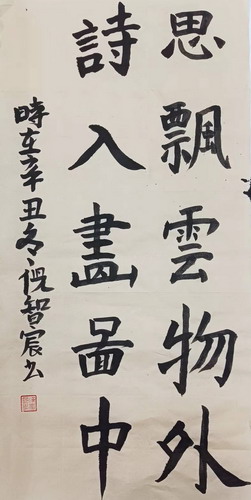 思飄雲物外
詩入畫圖中
時在辛丑冬智宸书